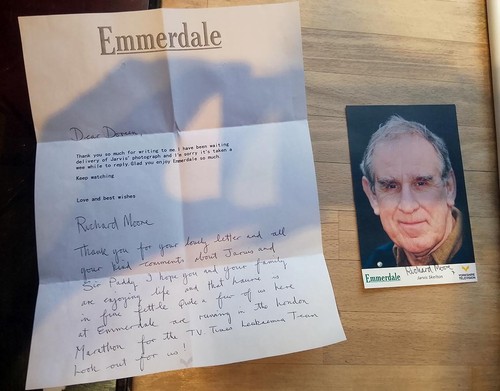 Emmerdale
Dear
Thank you so much for writing to me I have been waiting
delivery of Jarvis' photograph and I'm sorry it's taken a
wee while to reply. Glad you enjoy Emmerdale so much.
Keep watching
Love and best wishes
Richard Moore
Thank you for your lovely letter and all
your kind comments about Jarvis and
Sir Paddy. I hope you and your family
are enjoying life and that Laura is
in fine fettle. Quite a few of us here
at Emmerdale are running in the London
Marathon for the T.V. Times Leukaemia Team
Look out for us!
Emmerdale
Richard Moore
Jarvis Skelton
YORKSHIRE
TELEVISION